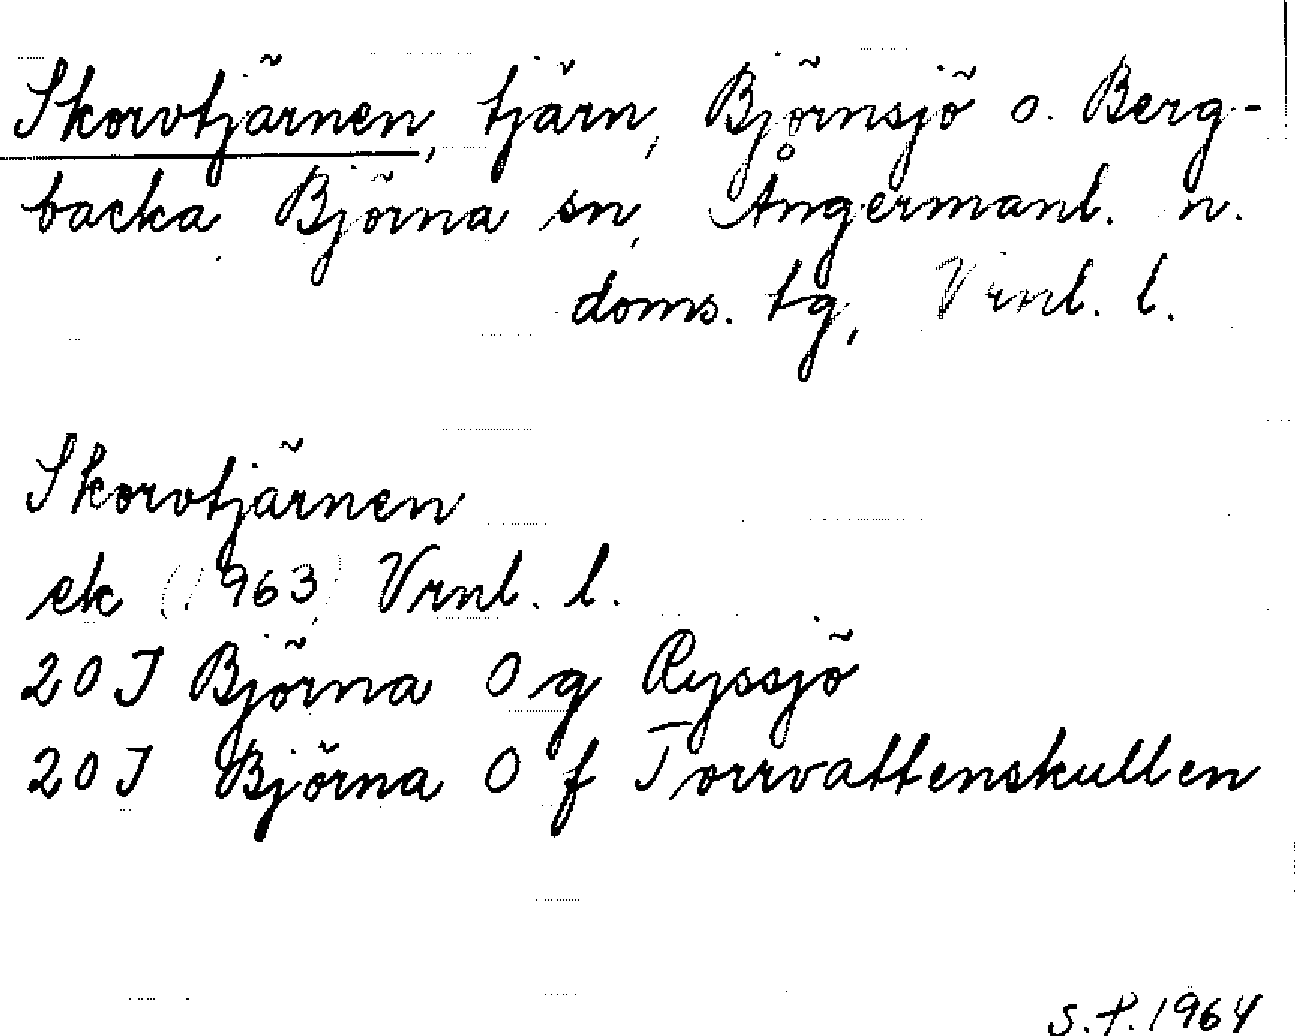 Skorvtjärnen, tjärn, Björnsjö o. Berg-
backa, Björna sn, Ångermanl. n.
doms. tg, Vrnl. l.
Skorvtjärnen
ek (1963) Vrnl. l.
20 J Björna O g Ryssjö
20 J Björna O f Torrvattenskullen
S.F. 1964